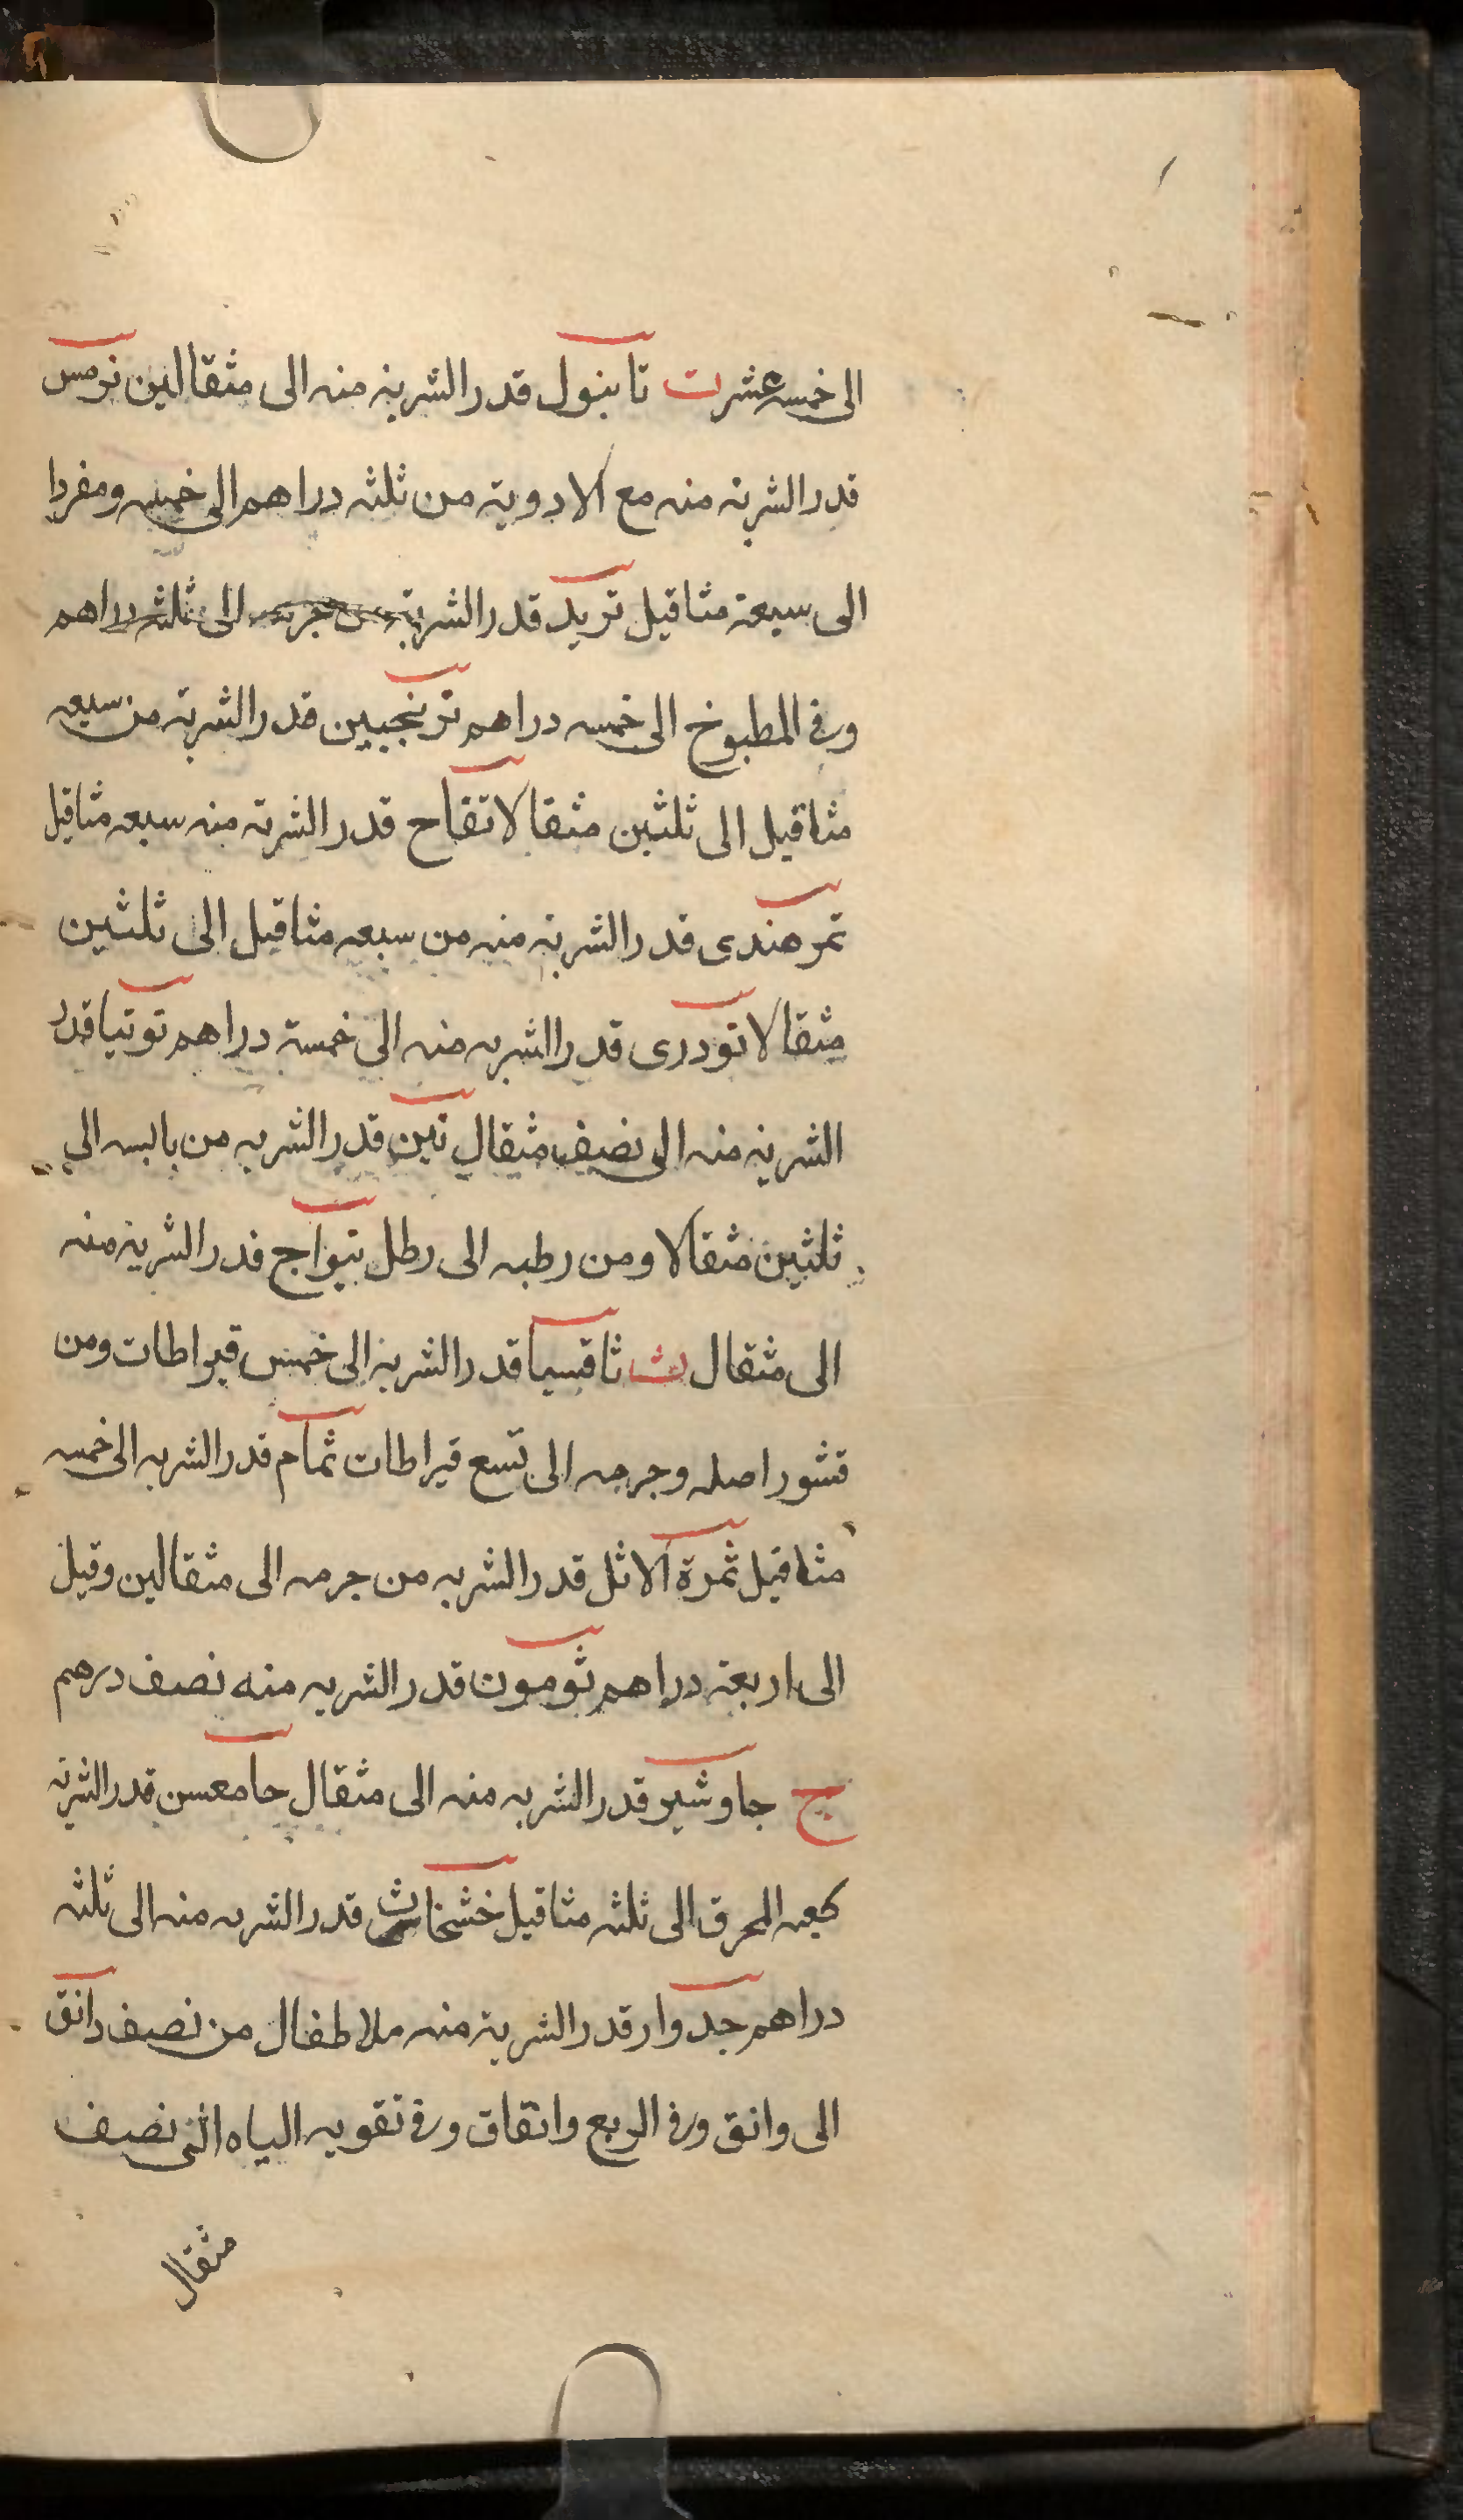 الى خمسه عشرت تابنول قدر الشربة منه الى مثقالين ترمس
قدر الشربة منه مع الادوية من ثلثه دراهم الى خمسه ومفردا
الى سبعة مثاقيل تربد قدر الشربة من جرمه الى ثلثه دراهم
وفى المطبوخ الى خمسه دراهم ترنجبين قدر الشربة من سبعه
مثاقيل الى ثلثين مثقالا تفاح قدر الشربة منه سبعه مثاقيل
تمر هندى قدر الشربة منه من سبعه مثاقيل الى ثلثين
مثقالا تودرى قدر الشربه منه الى خمسة دراهم توتيا قدر
الشربة منه الى نصف مثقال تين قدر الشربه من يابسه الى
ثلثين مثقالا ومن رطبه الى رطل تيواج قدر الشربة منه
الى مثقال ث ثاقسيا قدر الشربة الى خمس قيراطات ومن
قشور اصله وجرمه الى تسع قيراطات ثمام قدر الشربه الى خمسه
مثاقيل ثمرة الاثل قدر الشربه من جرمه الى مثقالين وقيل
الى اربعة دراهم ثومون قدر الشربه منه نصف درهم
ج جاوشير قدر الشربه منه الى مثقال حامعسن قدر الشربة
كعبه المحرق الى ثلثه مثاقيل خشخاش قدر الشربه منه الى ثلثه
دراهم جدوار قدر الشربة منه ملاطفال من نصف دانق
الى وانق وفى الربع وانقاق وفى تقويه الياه اثنى نصف
مثقال